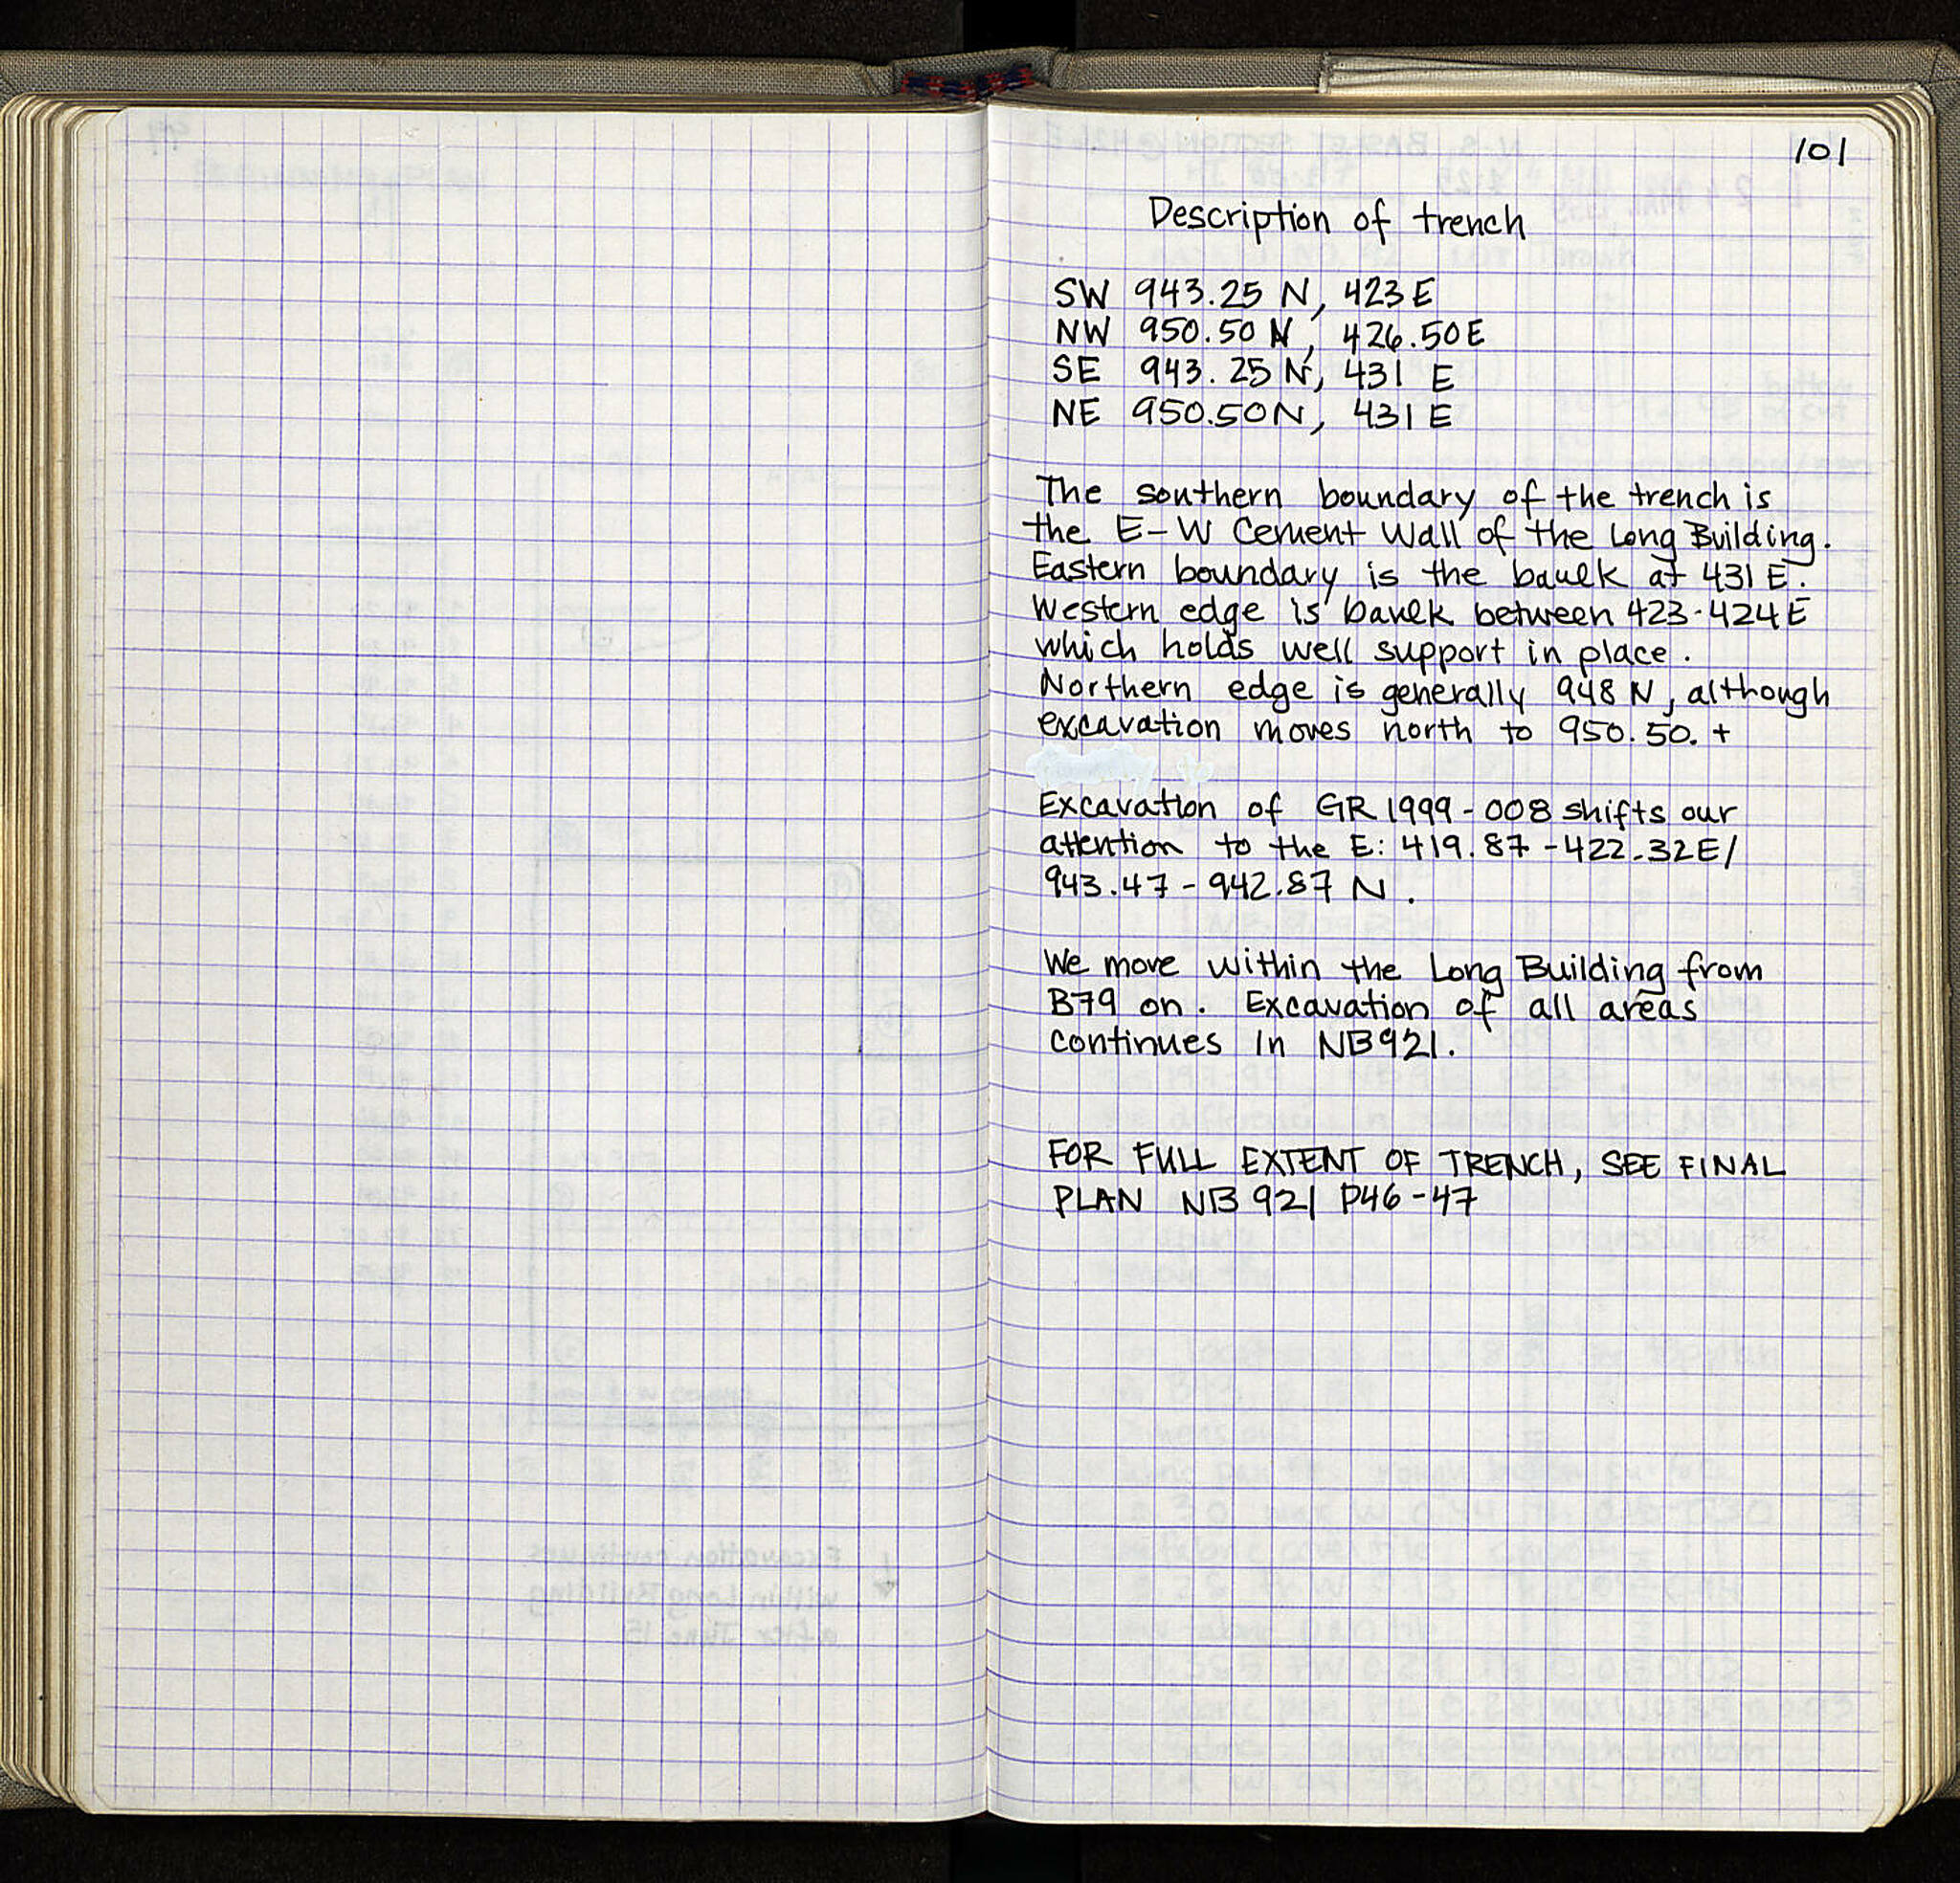 101
Description of trench
SW 943.25 N, 423 E
NW 950.50 N, 426.50 E
SE 943.25 N, 431 E
NE 950.50 N, 431 E
The southern boundary of the trench is
the E-W Cement Wall of the Long Building.
Eastern boundary is the baulk at 431 E.
Western edge is baulk between 423-424 E
which holds well support in place.
Northern edge is generally 948 N, although
excavation moves north to 950.50. +
Excavation of GR 1999-008 shifts our
attention to the E: 419.87-422.32E/
943.47-942.87 N.
We move within the Long Building from
B79 on. Excavation of all areas
continues in NB921.
FOR FULL EXTENT OF TRENCH, SEE FINAL
PLAN NB 921 P46-47